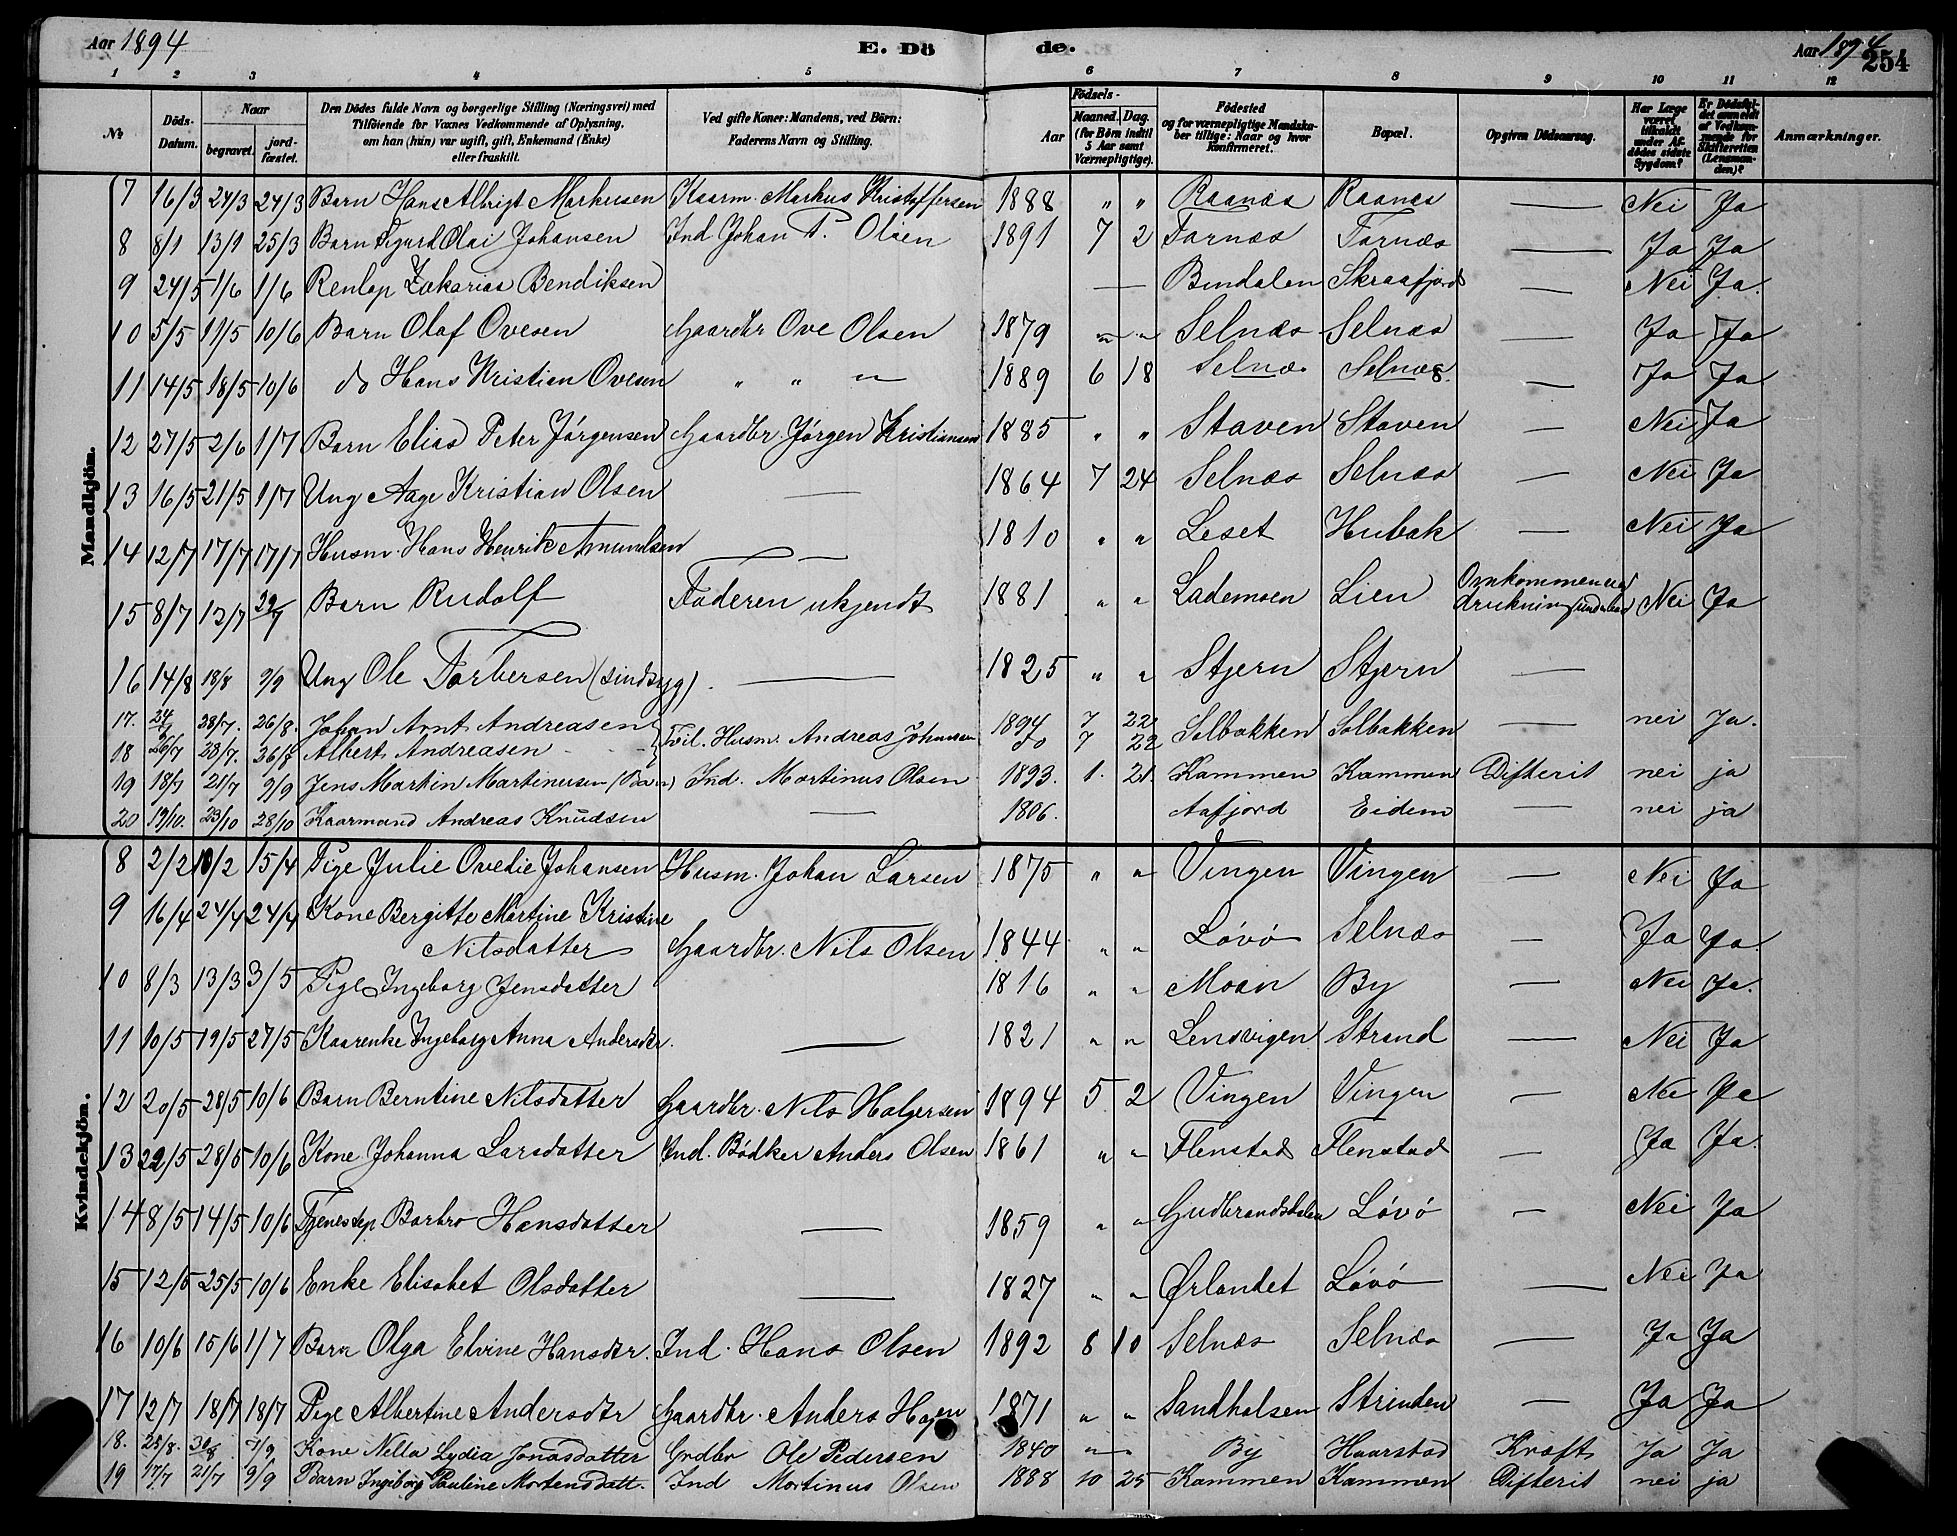 Aar 1894 E. Dö de. Aar 1894 254
1 2 3 4 5 6 7 8 9 10 11 12
No Döds-Datum. Naar begravet. jord-fæstet. Den Dödes fulde Navn og borgerlige Stilling (Næringsvei) med Tilföiende for Voxnes Vedkommende af Oplysning, om han (hun) var ugift, gift, Enkemand (Enke) eller fraskilt. Ved gifte Koner: Mandens, ved Börn: Faderens Navn og Stilling. Födsels- Aar Maaned. Dag. (for Börn indtil 5 Aar samt Værnepligtige). Födested og for værnepligtige Mandskaber tillige: Naar og hvor Konfirmeret. Bopæl. Opgiven Dödsaarsag. Har Læge været tilkaldt under Afdödes sidste Sygdom? Er Dödsfaldet anmeldt af Vedkommende for Skifteretten (Lensmanden)? Anmærkninger.
Mandkjön.
7 16/3 24/3 24/3 Barn Hans Albrigt Markusen Kaarm. Markus Kristoffersen 1888 " " Raanæs Raanæs — Nei Ja
8 8/1 13/1 25/3 Barn Sigurd Olai Johansen Ind Johan P. Olsen 1891 7 2 Tarnæs Tarnæs — Ja Ja
9 24/5 1/6 1/6 Renlap Zakarias Bendiksen — Bindalen Skraafjord — Nei Ja.
10 5/5 11/5 10/6 Barn Olaf Ovesen Gaardbr Ove Olsen 1879 " " Selnæs Selnæs — Ja Ja
11 14/5 18/5 10/6 do Hans Kristian Ovesen " " " 1889 6 18 Selnæs Selnæs. — Ja Ja
12 27/5 2/6 1/7 Barn Elias Peter Jørgensen Gaardbr. Jørgen Kristiansen 1885 " " Staven Staven — Nei Ja
13 16/5 21/5 1/7 Ung Aage Kristian Olsen — 1864 7 24 Selnæs Selnæs — Nei Ja
14 12/7 17/7 17/7 Husm. Hans Henrik Amundsen — 1810 " " Leset Hubak — Nei Ja
15 8/7 12/7 29/7 Barn Rudolf Faderen ukjendt 1881 " " Lademoen Lien Omkommen ved drukning Nei Ja
16 14/8 18/8 9/9 Ung Ole Torbersen (sindssyg). — 1825 " " Stjern Stjern —
17. 24/7 28/7. 26/8. Johan Arnt Andreasen } Tvil. Husm. Andreas Johansen 1894 7 22 Solbakken Solbakken — nei Ja.
18 26/7 28/7. 26/8 Albert Andreasen do 7 22
19 18/7 21/7 9/9 Jens Martin Martinusen (Barn) Ind. Martinus Olsen 1893. 1. 21. Kammen Kammen Difterit nei ja
20 19/10. 23/10 28/10 Kaarmand Andreas Knudsen — 1806. Aafjord Eidem — nei ja
Kvindekjön.
8 2/2 10/2 15/4 Pige Julie Ovedie Johansen Husm. Johan Larsen 1875 " " Vingen Vingen — Nei Ja
9 16/4 24/4 24/4 Kone Bergitte Martine Kristine
Nilsdatter Gaardbr. Nils Olsen 1844 " " Løvø Selnæs — Ja Ja
10 8/3 13/3 3/5 Pige Ingeborg Jensdatter 1816 " " Moan By — Nei Ja.
11 10/5 19/5 27/5 Kaarenke Ingeborg Anna Andersdtr. — 1821 " " Lensvigen Strand — Nei Ja
12 20/5 28/5 10/6 Barn Berntine Nilsdatter Gaardbr. Nils Holgersen 1894 5 2 Vingen Vingen — Nei Ja
13 22/5 28/5 10/6 Kone Johanna Larsdatter Ind. Bødker Anders Olsen 1861 " " Flenstad Flenstad — Ja Ja.
14 8/5 14/5 10/6 Tjenestep. Barbro Hansdatter — 1859 " " Gudbrandsdalen Løvø — Nei Ja
15 12/5 25/5 10/6 Enke Elisabet Olsdatter — 1827 " " Ørlandet Løvø — Nei Ja
16 10/6 15/6 1/7 Barn Olga Elvine Hansdtr. Ind. Hans Olsen 1892 8 10 Selnæs Selnæs — Ja Ja
17 12/7 18/7 18/7 Pige Albertine Andersdtr Gaardbr. Anders Hagen 1871 " " Sandholsen Strinden — Ja Ja
18. 25/8. 30/8 7/9 Kone Nella Lydia Jonasdatter Grdbr Ole Pedersen 1840 " By Haarstad Kræft Ja Ja
19 17/7 21/7 9/9 Barn Ingeborg Pauline Mortensdatt. Ind Martinus Olsen 1888 10 25 Kammen Kammen Difterit nei ja